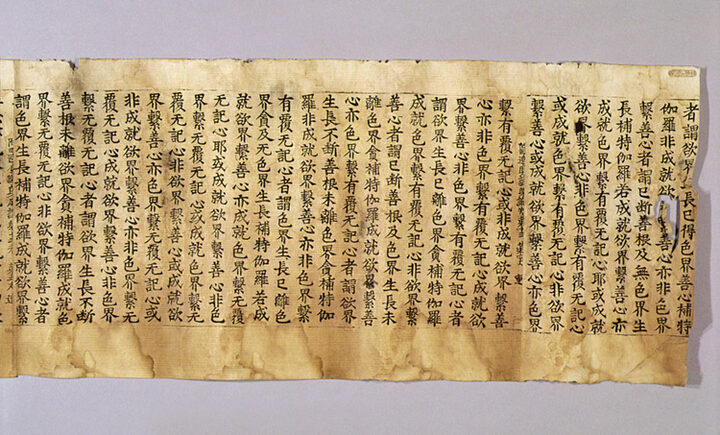 者謂欲界生長已得色界善心補特
伽羅非成就欲善心亦非色界
繫善心者謂已斷善根及無色界生
長補特伽羅若成就欲界繫善心亦
成就色界繫有覆无記心耶或成就
欲界繫善心非色界繫有覆无記心
或成就色界繫有覆无記心非欲界
繫善心或成就欲界繫善心亦色界
繫有覆无記心或非成就欲界繫善
心亦非色界繫有覆无記心成就欲
界繫善心非色界繫有覆无記心者
謂欲界生長已離色界貪補特伽羅
成就色界繫有覆无記心非欲界繫
善心者謂已斷善根及色界生長未
離色界貪補特伽羅成就欲界繫善
心亦色界繫有覆无記心者謂欲界
生長不斷善根未離色界貪補特伽
羅非成就欲界繫善心亦非色界繫
有覆无記心者謂色界生長已離色
界貪及无色界生長補特伽羅若成
就欲界繫善心亦成就色界繫无覆
无記心耶或成就欲界繫善心非色
界繫无覆无記心或成就色界繫无
覆无記心非欲界繫善心或成就欲
界繫善心亦色界繫无覆无記心或
非成就欲界繫善心亦非色界繫无
覆无記心成就欲界繫善心非色界
繫无覆无記心者謂欲界生長不斷
善根未離欲界貪補特伽羅成就色
界繫无覆无記心非欲界繫善心者
謂色界生長補特伽羅成就欲界繫